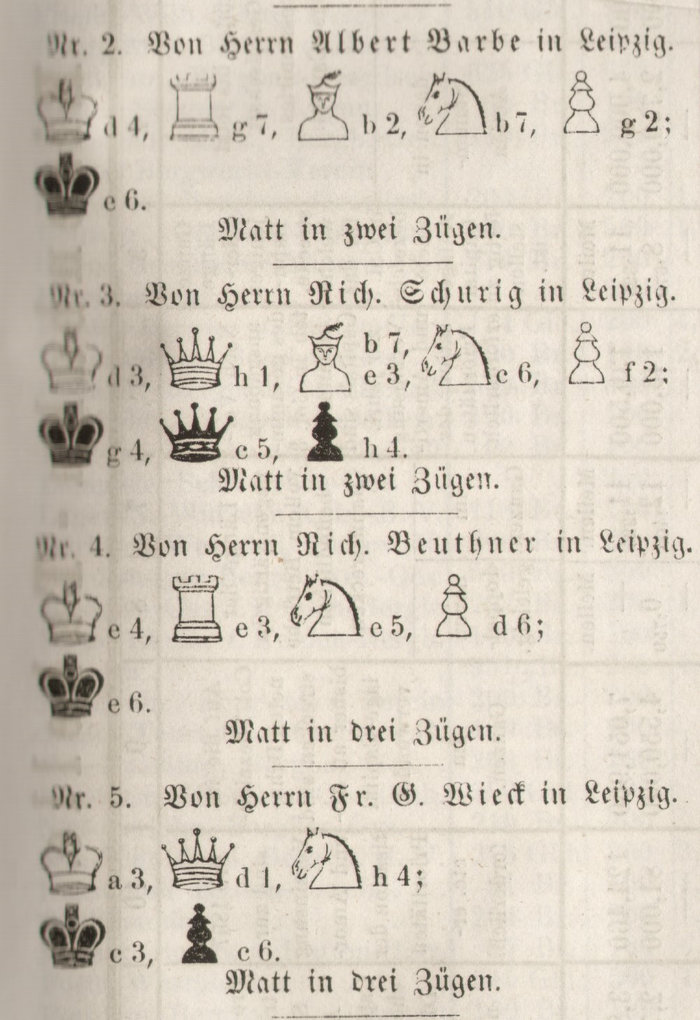 Nr. 2. Von Herrn Albert Barbe in Leipzig.
d 4, g 7, b 2, b 7, g 2;
e 6.
Matt in zwei Zügen.
Nr. 3. Von Herrn Rich. Schurig in Leipzig.
b 7,
d 3, h 1, e 3, c 6, f 2;
g 4, c 5, h 4.
Matt in zwei Zügen.
Nr. 4. Von Herrn Rich. Beuthner in Leipzig.
e 4, e 3, e 5, d 6;
e 6.
Matt in drei Zügen.
Nr. 5. Von Herrn Fr. G. Wieck in Leipzig.
a 3, d 1, h 4;
c 3, c 6.
Matt in drei Zügen.